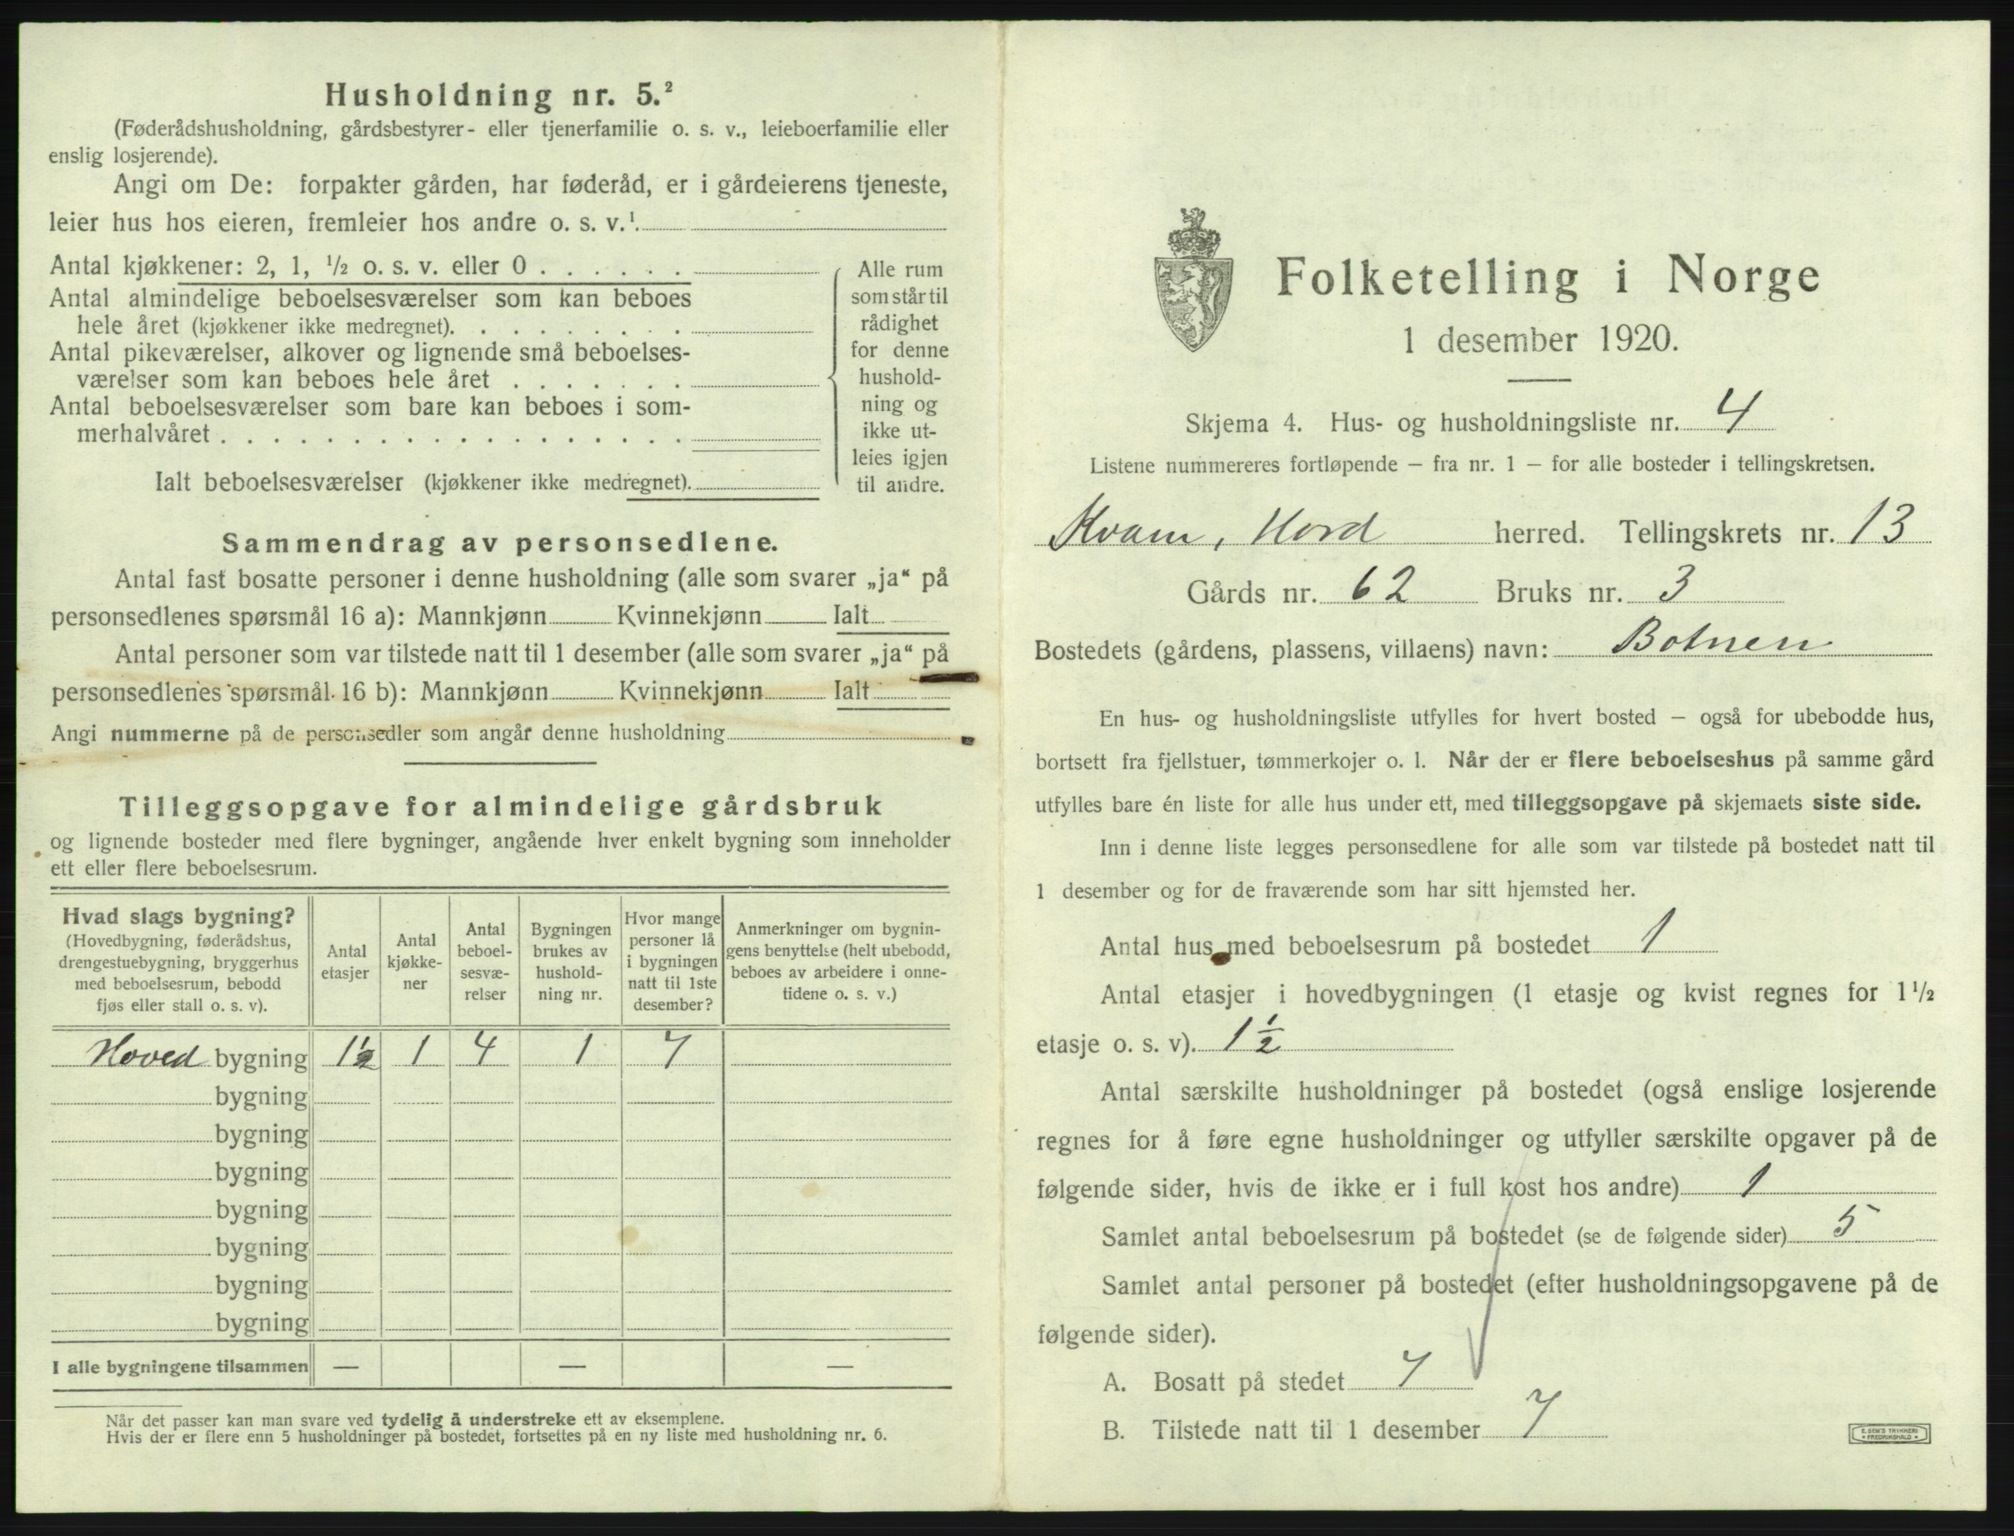 Husholdning nr. 5.²
(Føderådshusholdning, gårdsbestyrer- eller tjenerfamilie o. s. v., leieboerfamilie eller
enslig losjerende).
Angi om De: forpakter gården, har føderåd, er i gårdeierens tjeneste,
leier hus hos eieren, fremleier hos andre o. s. v.¹
Antal kjøkkener: 2, 1, ½ o. s. v. eller 0 . . . . . .
Antal almindelige beboelsesværelser som kan beboes
hele året (kjøkkener ikke medregnet). . . . . . . . .
Antal pikeværelser, alkover og lignende små beboelses-
værelser som kan beboes hele året . . . . . . .
Antal beboelsesværelser som bare kan beboes i som-
merhalvåret . . . . . . . . . . . . . . . . . .
Ialt beboelsesværelser (kjøkkener ikke medregnet).
Alle rum
som står til
rådighet
for denne
hushold-
ning og
ikke ut-
leies igjen
til andre.
Sammendrag av personsedlene.
Antal fast bosatte personer i denne husholdning (alle som svarer „ja“ på
personsedlenes spørsmål 16 a): Mannkjønn Kvinnekjønn Ialt
Antal personer som var tilstede natt til 1 desember (alle som svarer „ja“ på
personsedlenes spørsmål 16 b): Mannkjønn Kvinnekjønn Ialt
Angi nummerne på de personsedler som angår denne husholdning
Tilleggsopgave for almindelige gårdsbruk
og lignende bosteder med flere bygninger, angående hver enkelt bygning som inneholder
ett eller flere beboelsesrum.
Hvad slags bygning?
(Hovedbygning, føderådshus,
drengestuebygning, bryggerhus
med beboelsesrum, bebodd
fjøs eller stall o. s. v).
Antal
etasjer
Antal
kjøkke-
ner
Antal
beboel-
sesvæ-
relser
Bygningen
brukes av
hushold-
ning nr.
Hvor mange
personer lå
i bygningen
natt til 1ste
desember?
Anmerkninger om bygnin-
gens benyttelse (helt ubebodd,
beboes av arbeidere i onne-
tidene o. s. v.)
Hoved bygning 1½ 1 4 1 7
bygning
bygning
bygning
bygning
bygning
bygning
bygning
I alle bygningene tilsammen — — —
Når det passer kan man svare ved tydelig å understreke ett av eksemplene.
Hvis der er flere enn 5 husholdninger på bostedet, fortsettes på en ny liste med husholdning nr. 6.
Folketelling i Norge
1 desember 1920.
Skjema 4. Hus- og husholdningsliste nr. 4
Listene nummereres fortløpende – fra nr. 1 – for alle bosteder i tellingskretsen.
Kvam, Hord herred. Tellingskrets nr. 13
Gårds nr. 62 Bruks nr. 3
Bostedets (gårdens, plassens, villaens) navn: Botnen
En hus- og husholdningsliste utfylles for hvert bosted – også for ubebodde hus,
bortsett fra fjellstuer, tømmerkojer o. l. Når der er flere beboelseshus på samme gård
utfylles bare én liste for alle hus under ett, med tilleggsopgave på skjemaets siste side.
Inn i denne liste legges personsedlene for alle som var tilstede på bostedet natt til
1 desember og for de fraværende som har sitt hjemsted her.
Antal hus med beboelsesrum på bostedet 1
Antal etasjer i hovedbygningen (1 etasje og kvist regnes for 1½
etasje o. s. v). 1½
Antal særskilte husholdninger på bostedet (også enslige losjerende
regnes for å føre egne husholdninger og utfyller særskilte opgaver på de
følgende sider, hvis de ikke er i full kost hos andre) 1
Samlet antal beboelsesrum på bostedet (se de følgende sider) 5
Samlet antal personer på bostedet (efter husholdningsopgavene på de
følgende sider).
A. Bosatt på stedet 7
B. Tilstede natt til 1 desember 7
E. SEM'S TRYKKERI
FREDRIKSHALD